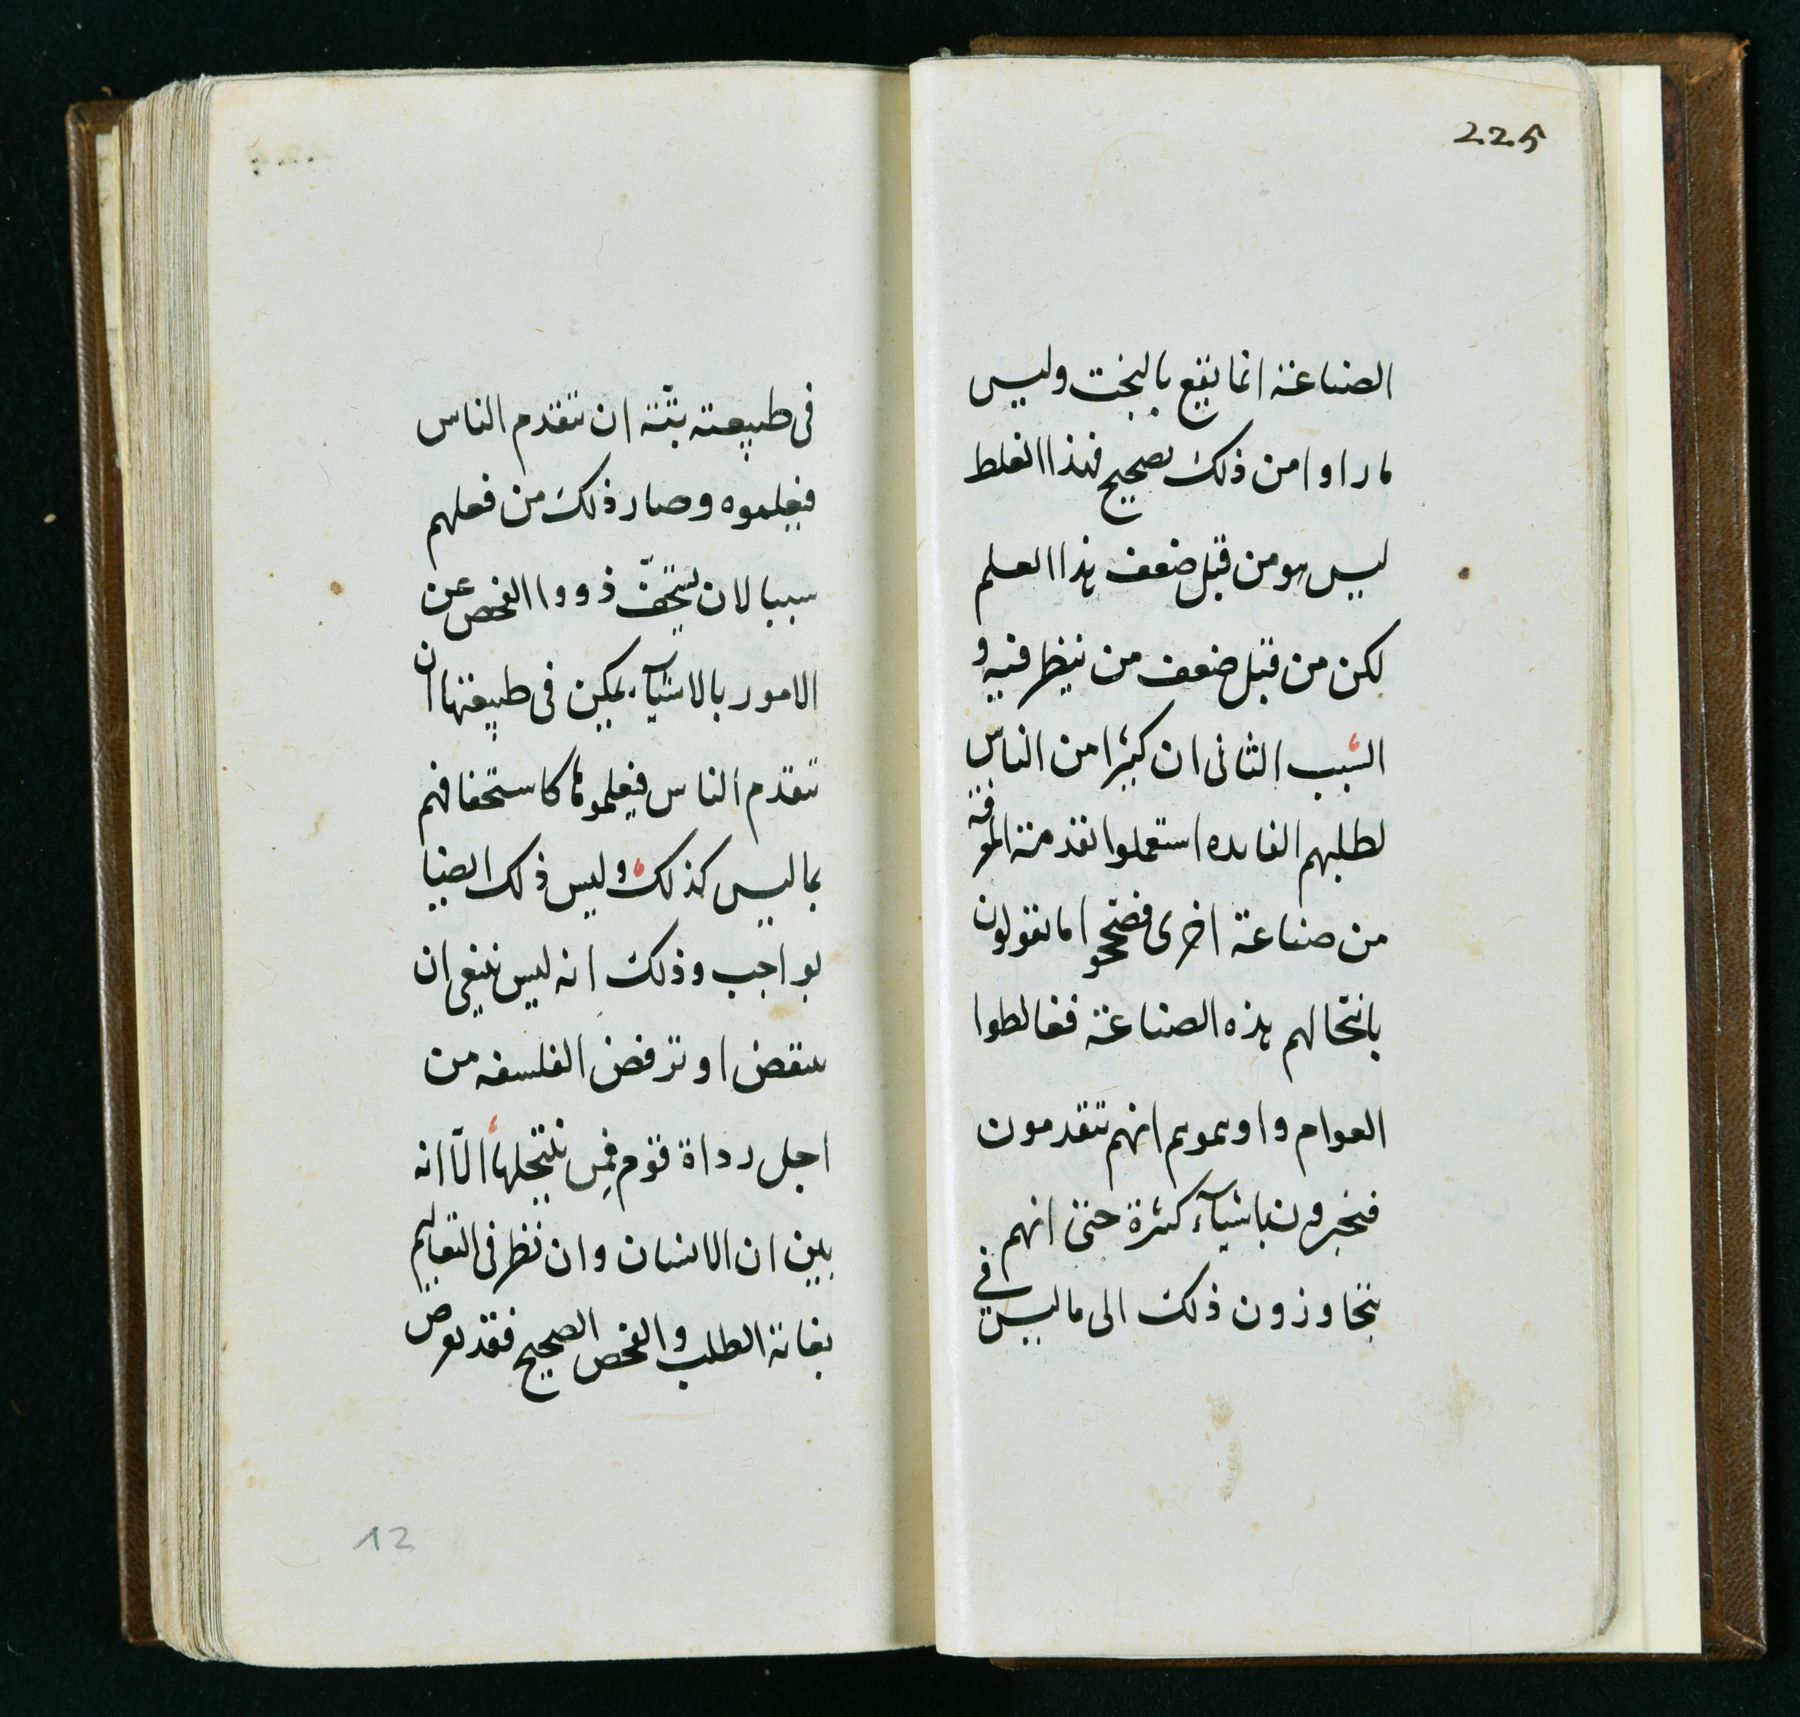 225
الصناعة انما يقع بالبخت وليس
ما راوا من ذلك بصحيح فهذا الغلط
ليس هو من قبل ضعف هذا العلم
لكن من قبل ضعف من ينظر فيه و
السبب الثانى ان كثيرا من الناس
لطلبهم الفايده استعملوا تقدمة المعرفة
من صناعة اخرى فصححوا ما يقولون
بانتحالهم هذه الصناعة فغالطوا
العوام واوهموهم انهم يتقدمون
فيخبرون باشيآء كثيرة حتى انهم
يتجاوزون ذلك الى ما ليس فى
فى طبيعته بتة ان يتقدم الناس
فيعلموه وصار ذلك من فعلهم
سببا لان يستخفّ ذووا الفحص عن
الامور بالاشيآء يمكن فى طبيعتها ان
يتقدم الناس فيعلموها كاستخفافهم
بما ليس كذلك وليس ذلك ايضا
بواجب وذلك انه ليس ينبغى ان
ينقض او ترفض الفلسفه من
اجل رداة قوم فمن ينتحلها الّا انه
بين ان الانسان وان نظر فى التعاليم
بغاية الطلب والفحص الصحيح فقد يعرض
12